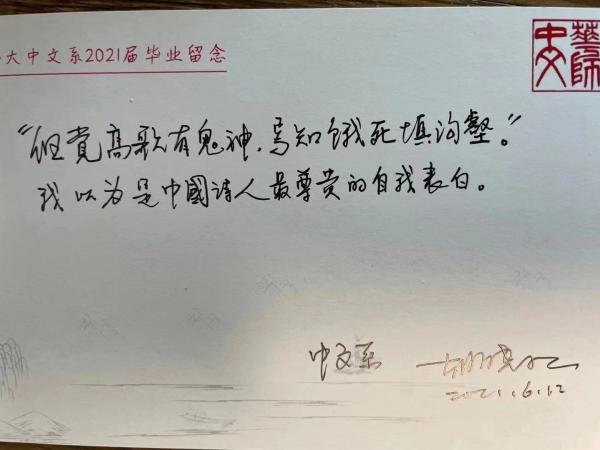 大中文系2021届毕业留念
華師
中文
"但觉高歌有鬼神,焉知饿死填沟壑。"
我以为是中國诗人最尊贵的自我表白。
中文系 胡晓明
2021.6.12